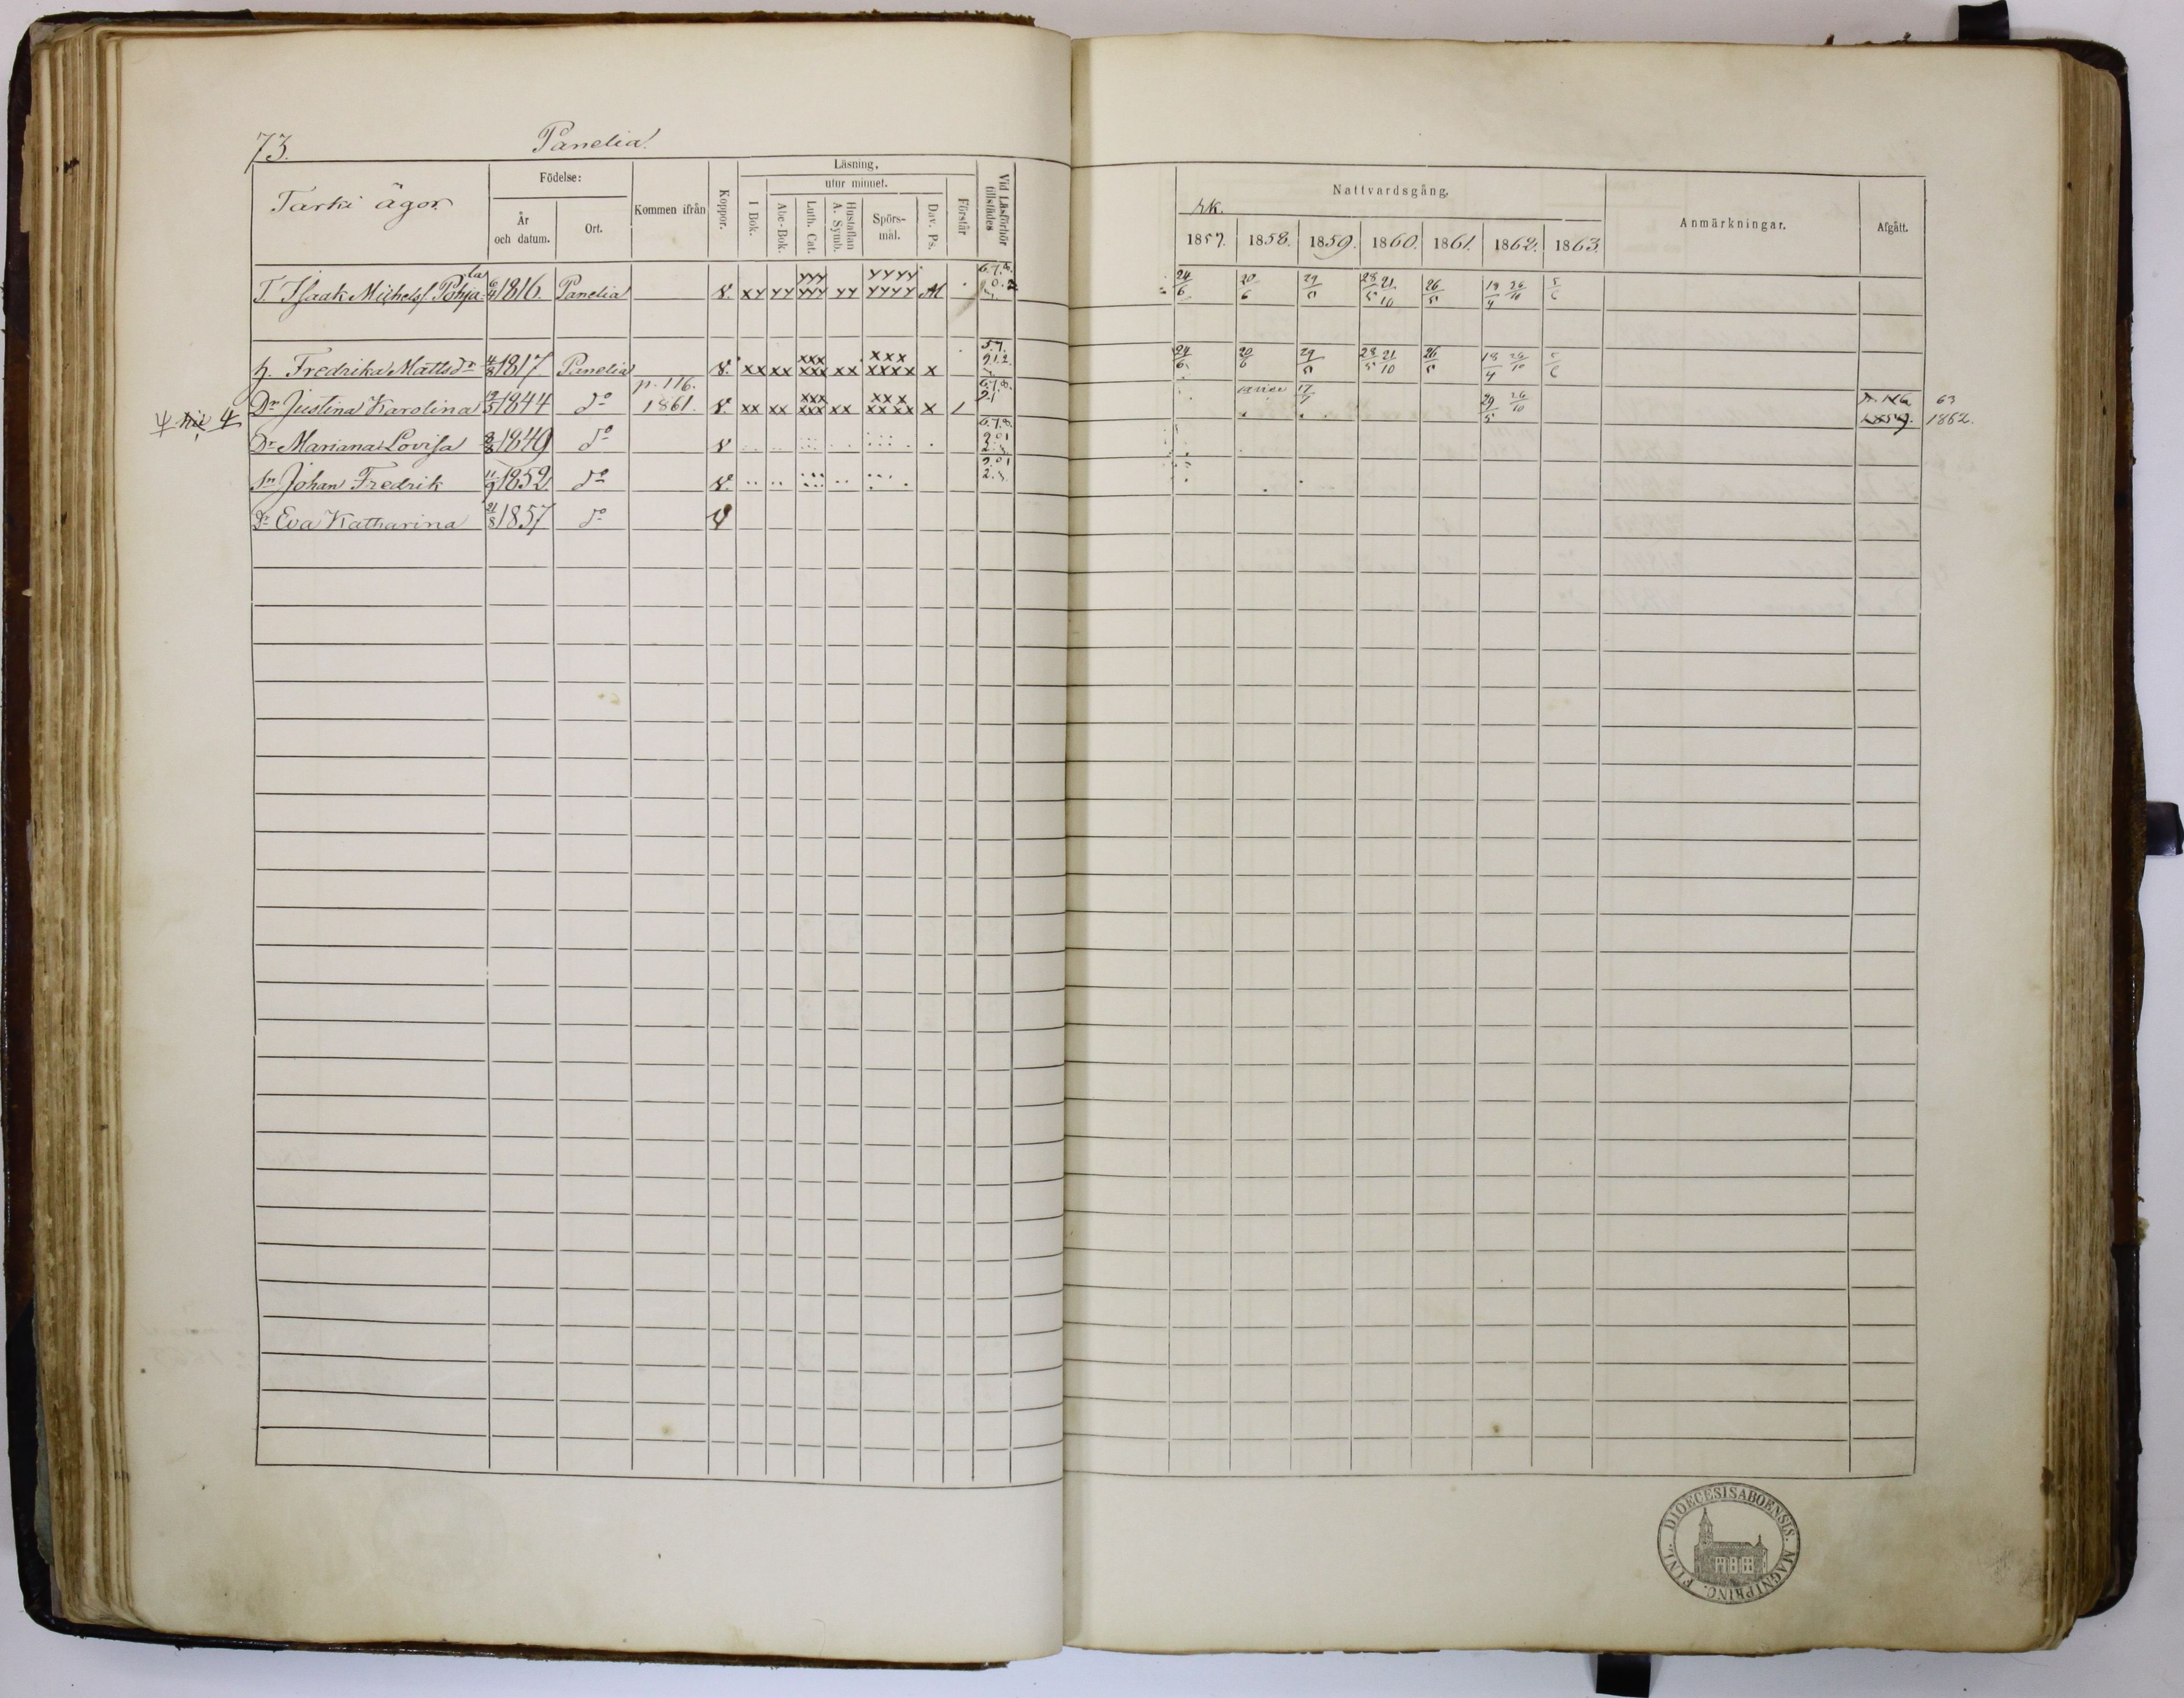 73.
Panelia
Tarki ägor.
Födelse:
År och datum.
Ort.
Kommen ifrån
Koppor.
Läsning,
utur minnet.
I Bok.
Abc-Bok.
Luth. Cat.
Hustaflan A. Symb.
Spörs-mål.
Dav. Ps.
Förstår
Vid Läsförhör tillstädes
Nattvardsgång.
1857. 1858. 1859. 1860. 1861. 1862. 1863.
Anmärkningar.
Afgått.
T. Isaak Michelss. Pohjala 6/4 1816. Panelia v. 24/6 20/6 29/5 28/5 21/10 26/5 19/4 26/10 5/6
h. Fredrika Mattsdr 4/8 1817 Panelia v. xx xx xxx xxx xx xxx xxxx x 24/6 20/6 29/5 28/5 21/10 26/5 18/4 26/10 5/6
Dr Justina Karolina 1844 do p. 116. 1861. v. xx xx xxx xxx xx xxx xxxx x 29/5 26/10 63 1862.
Dr Mariana Lovisa 1849 do v
Sn Johan Fredrik 11/9 1852 do v.
Dr Eva Katharina 21/8 1857 do v
DIOECESIS ABOENSIS. MAGNI PRINC. FINL.